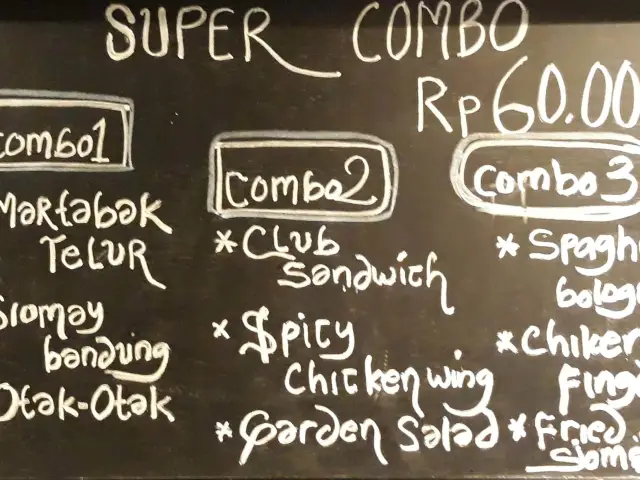 SUPER COMBO
Rp 60.00
Combo1
Martabak
Telur
Siomay
bandung
Otak-Otak
Combo2
* Club
Sandwich
* Spicy
Chicken wing
* Garden Salad
Combo 3
* Spaghe
bologn
* Chiken
Fing
* Fried
Sioma